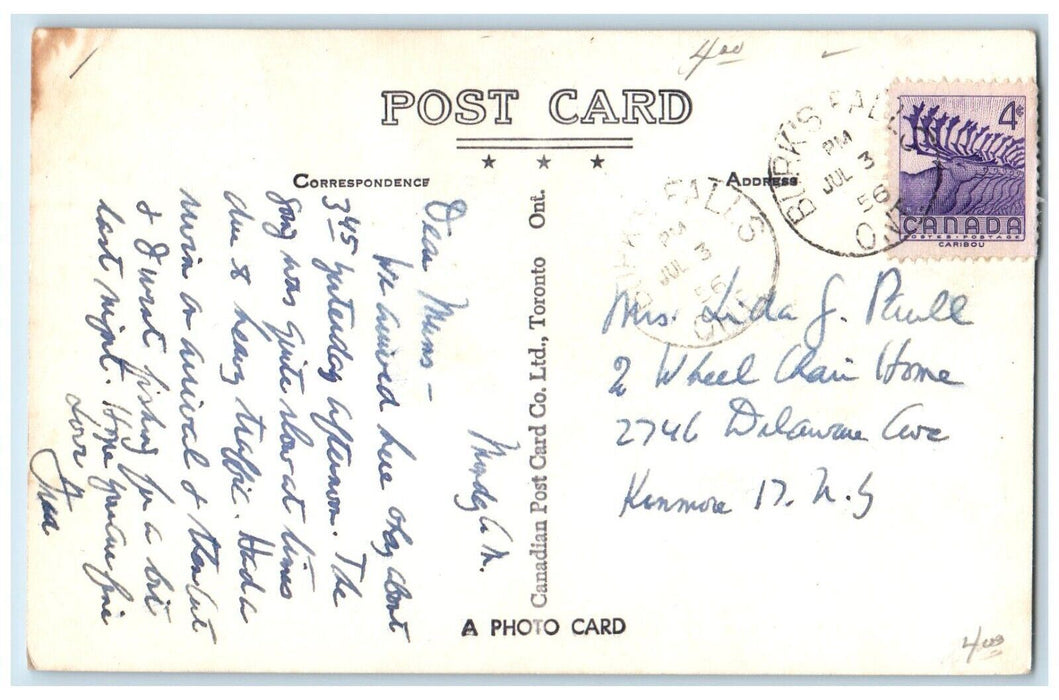 4.00
POST CARD
CORRESPONDENCE
ADDRESS
BURK'S FALLS
PM
JUL 3
56
ONT
BURK'S FALLS
PM
JUL 3
56
ONT
4¢
CANADA
POSTES - POSTAGE
CARIBOU
Monday A.M.
Dear Mums -
We arrived here okay about
3 45 yesterday afternoon. The
going was quite slow at times
due to heavy traffic. Had a
swim on arrival & then Art
& I went fishing for a bit
last night. Hope you are fine
Love
Canadian Post Card Co. Ltd., Toronto Ont.
Mrs. Lida J.
2 Wheel Chair Home
2746 Delaware Ave
Kenmore 17. N.Y
A PHOTO CARD
4.00